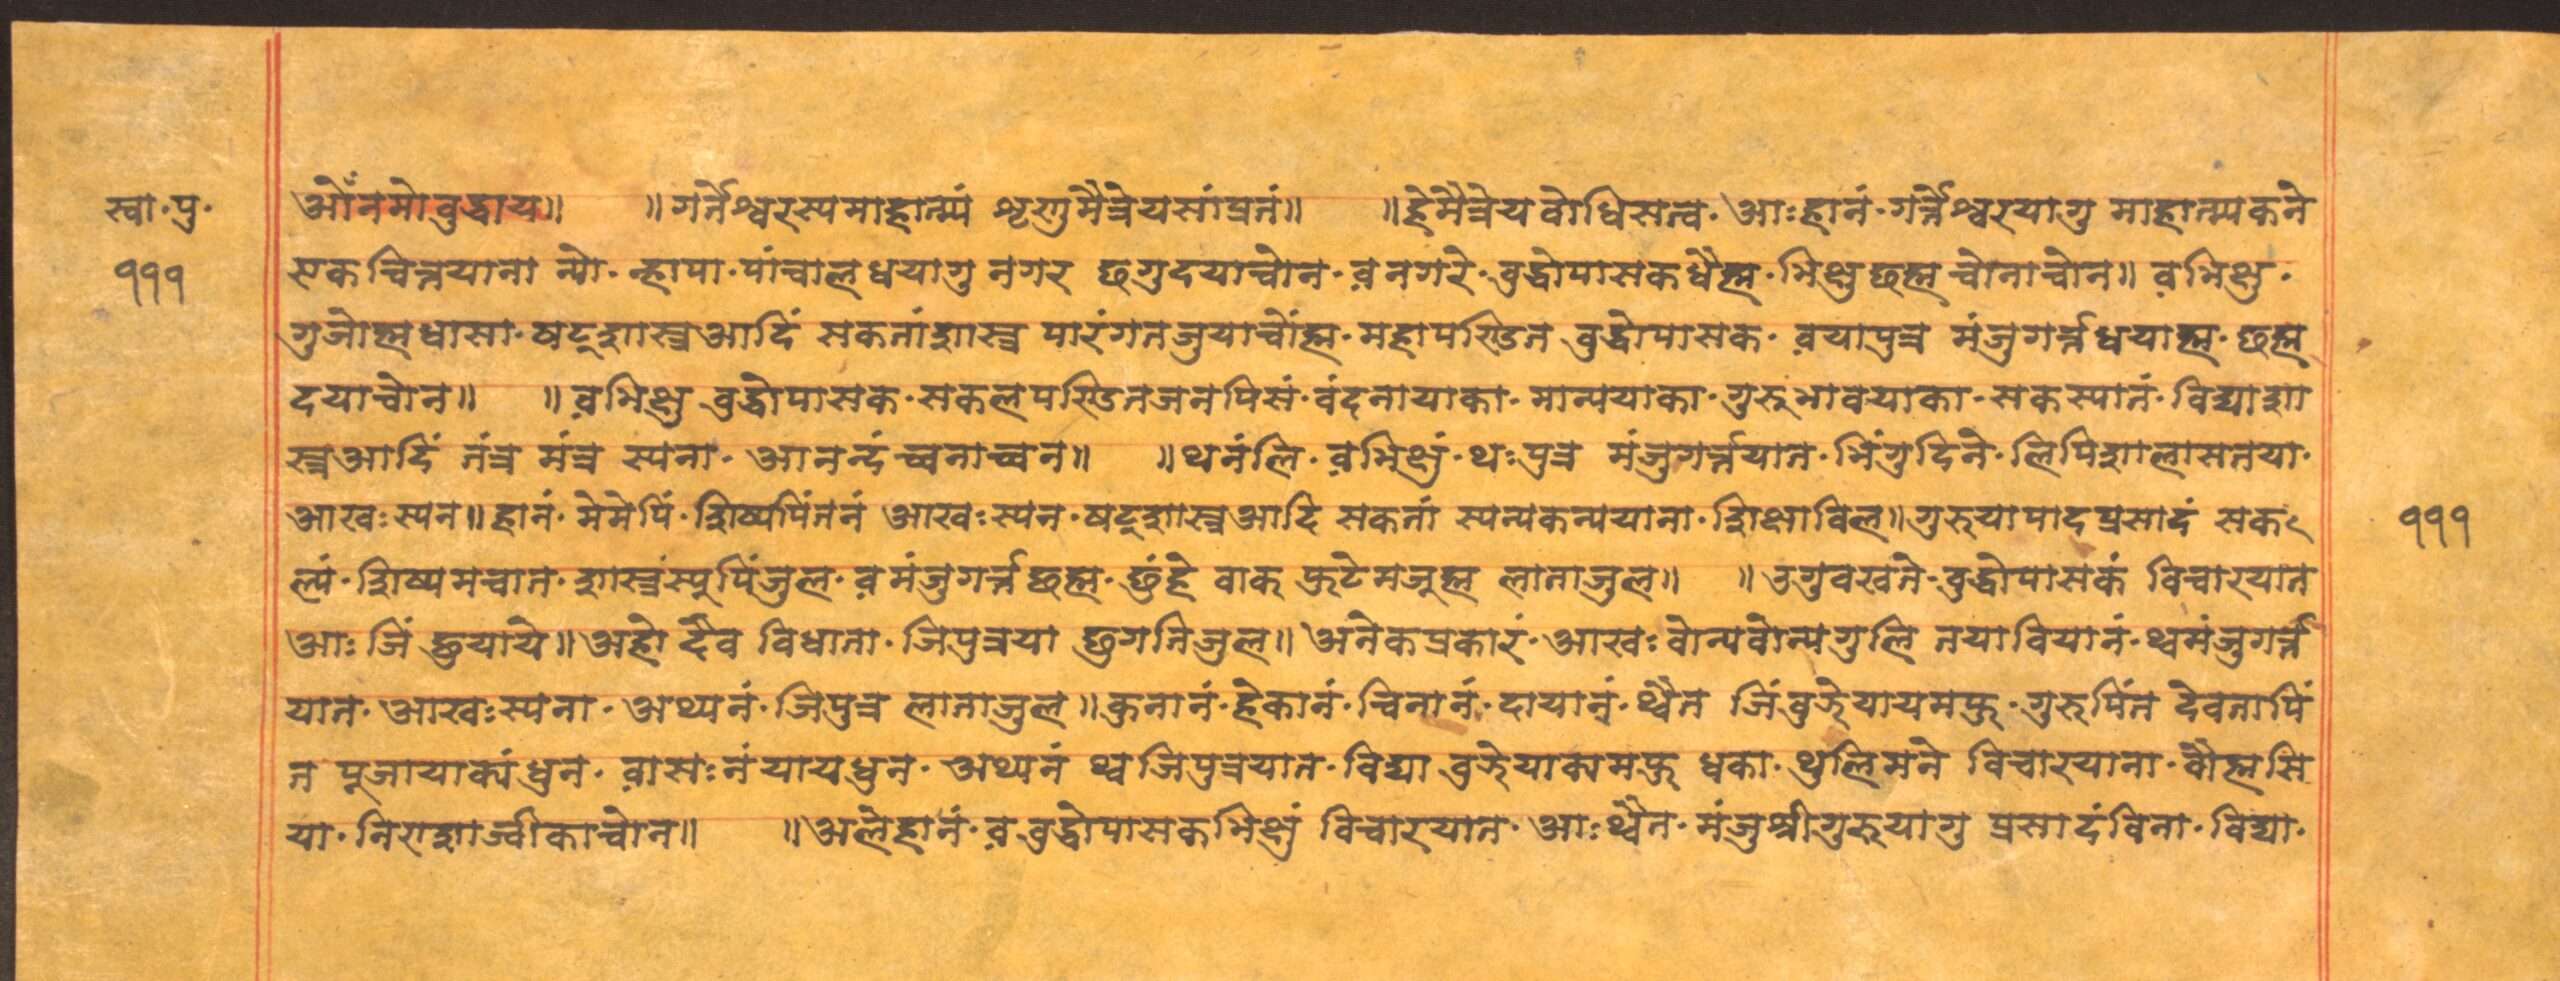 स्वा॰पु॰
१११
ओँ नमो वुद्धाय॥ ॥गर्त्तेश्वरस्यमाहात्म्यं शृणुमैत्रेयसांप्रतं॥ ॥हेमैत्रेय वोधिसत्व॰ आःहानं॰ गर्त्तेश्वरयागु माहात्म्यकने
एकचित्तयाना न्यो॰ न्हापा॰ पांचालधयागु नगर छगुदयाच्वोन॰ व़नगरे॰ वुद्धोपासकधैह्म॰ भिक्षुछह्म च्वोनाच्वोन॥ व़भिक्षु॰
गुजोह्मधासा॰ षट्शास्त्रआदिं सकतांशास्त्र पारंगतजुयाच्वोंह्म॰ महापण्डित वुद्धोपासक॰ व़यापुत्र मंजुगर्त्तधयाह्म॰ छह्म
दयाच्वोन॥ ॥व़भिक्षु वुद्धोपासक॰ सकलपण्डितजनपिसं॰ वंदनायाका॰ मान्ययाका॰ गुरुभावयाका॰ सकस्यातं॰ विद्याशा
स्त्रआदिं तंत्र मंत्र स्यना॰ आनन्दं च्वनाच्वन॥ ॥थनंलि॰ व़भिक्षुं॰ थःपुत्र मंजुगर्त्तयात॰ भिंगुदिने॰ लिपिशालासतया॰
आखःस्यन॥ हानं॰ मेमेपिं॰ शिष्यपिंतनं आखःस्यन॰ षट्शास्त्रआदि सकतां स्यन्यकन्ययाना॰ शिक्षाविल॥ गुरुयापादप्रसादं सक
ल्यं॰ शिष्यमचात॰ शास्त्रंस्यूपिंजुल॰ व़मंजुगर्त्तछह्म॰ छुंहे वाक् फुटेमजूह्म लाताजुल॥ ॥उगुवखते॰ वुद्धोपासकं विचारयात
आः जिं छुयाये॥ अहो दैव विधाता॰ जिपुत्रया छुगतिजुल॥ अनेकप्रकारं॰ आखः वोन्यवोन्यगुलि तयावियानं॰ थ्वमंजुगर्त्त
यात॰ आखःस्यना॰ अथ्यनं॰ जिपुत्र लाताजुल॥ कुनानं॰ हेकानं॰ चिनानं॰ दायानं॰ थ्वैत जिंवुझेयायमफु॰ गुरुपिंत देवतापिं
त पूजायाक्यंधुन॰ व़ासःनंयायधुन॰ अथ्यनं थ्वजिपुत्रयात॰ विद्या वुझेयाकामफु धका॰ थुलिमने विचारयाना॰ वौह्मसि
या॰ निराशाज्वीकाच्वोन॥ ॥अलेहानं॰ व़वुद्धोपासकभिक्षुं विचारयात॰ आःथ्वैत॰ मंजुश्रीगुरुयागु प्रसादंविना॰ विद्या॰
१११